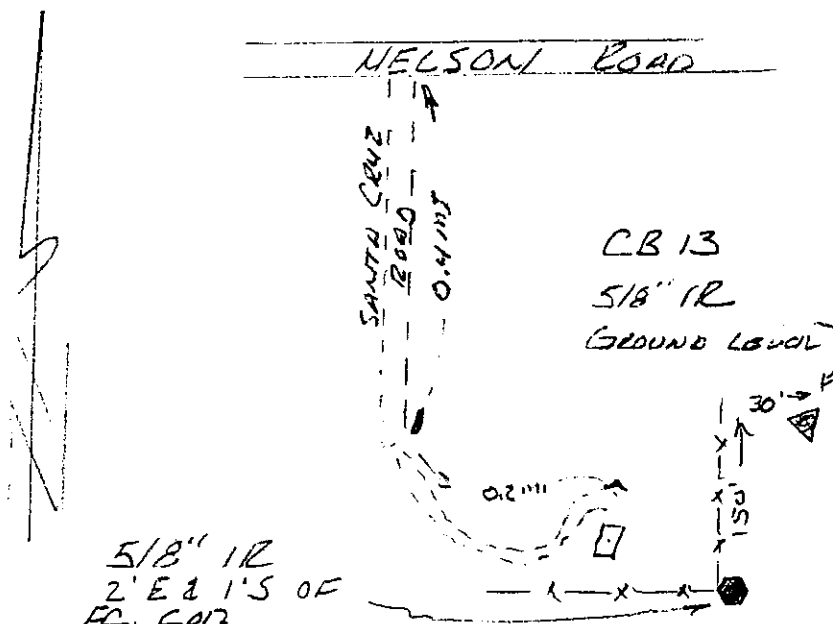 NELSON ROAD
SANTA CRUZ
ROAD
0.4 MI
CB 13
5/8" IR
GROUND LEVEL
30'
150'
0.2 MI
5/8" IR
2' E & 1' S OF
N